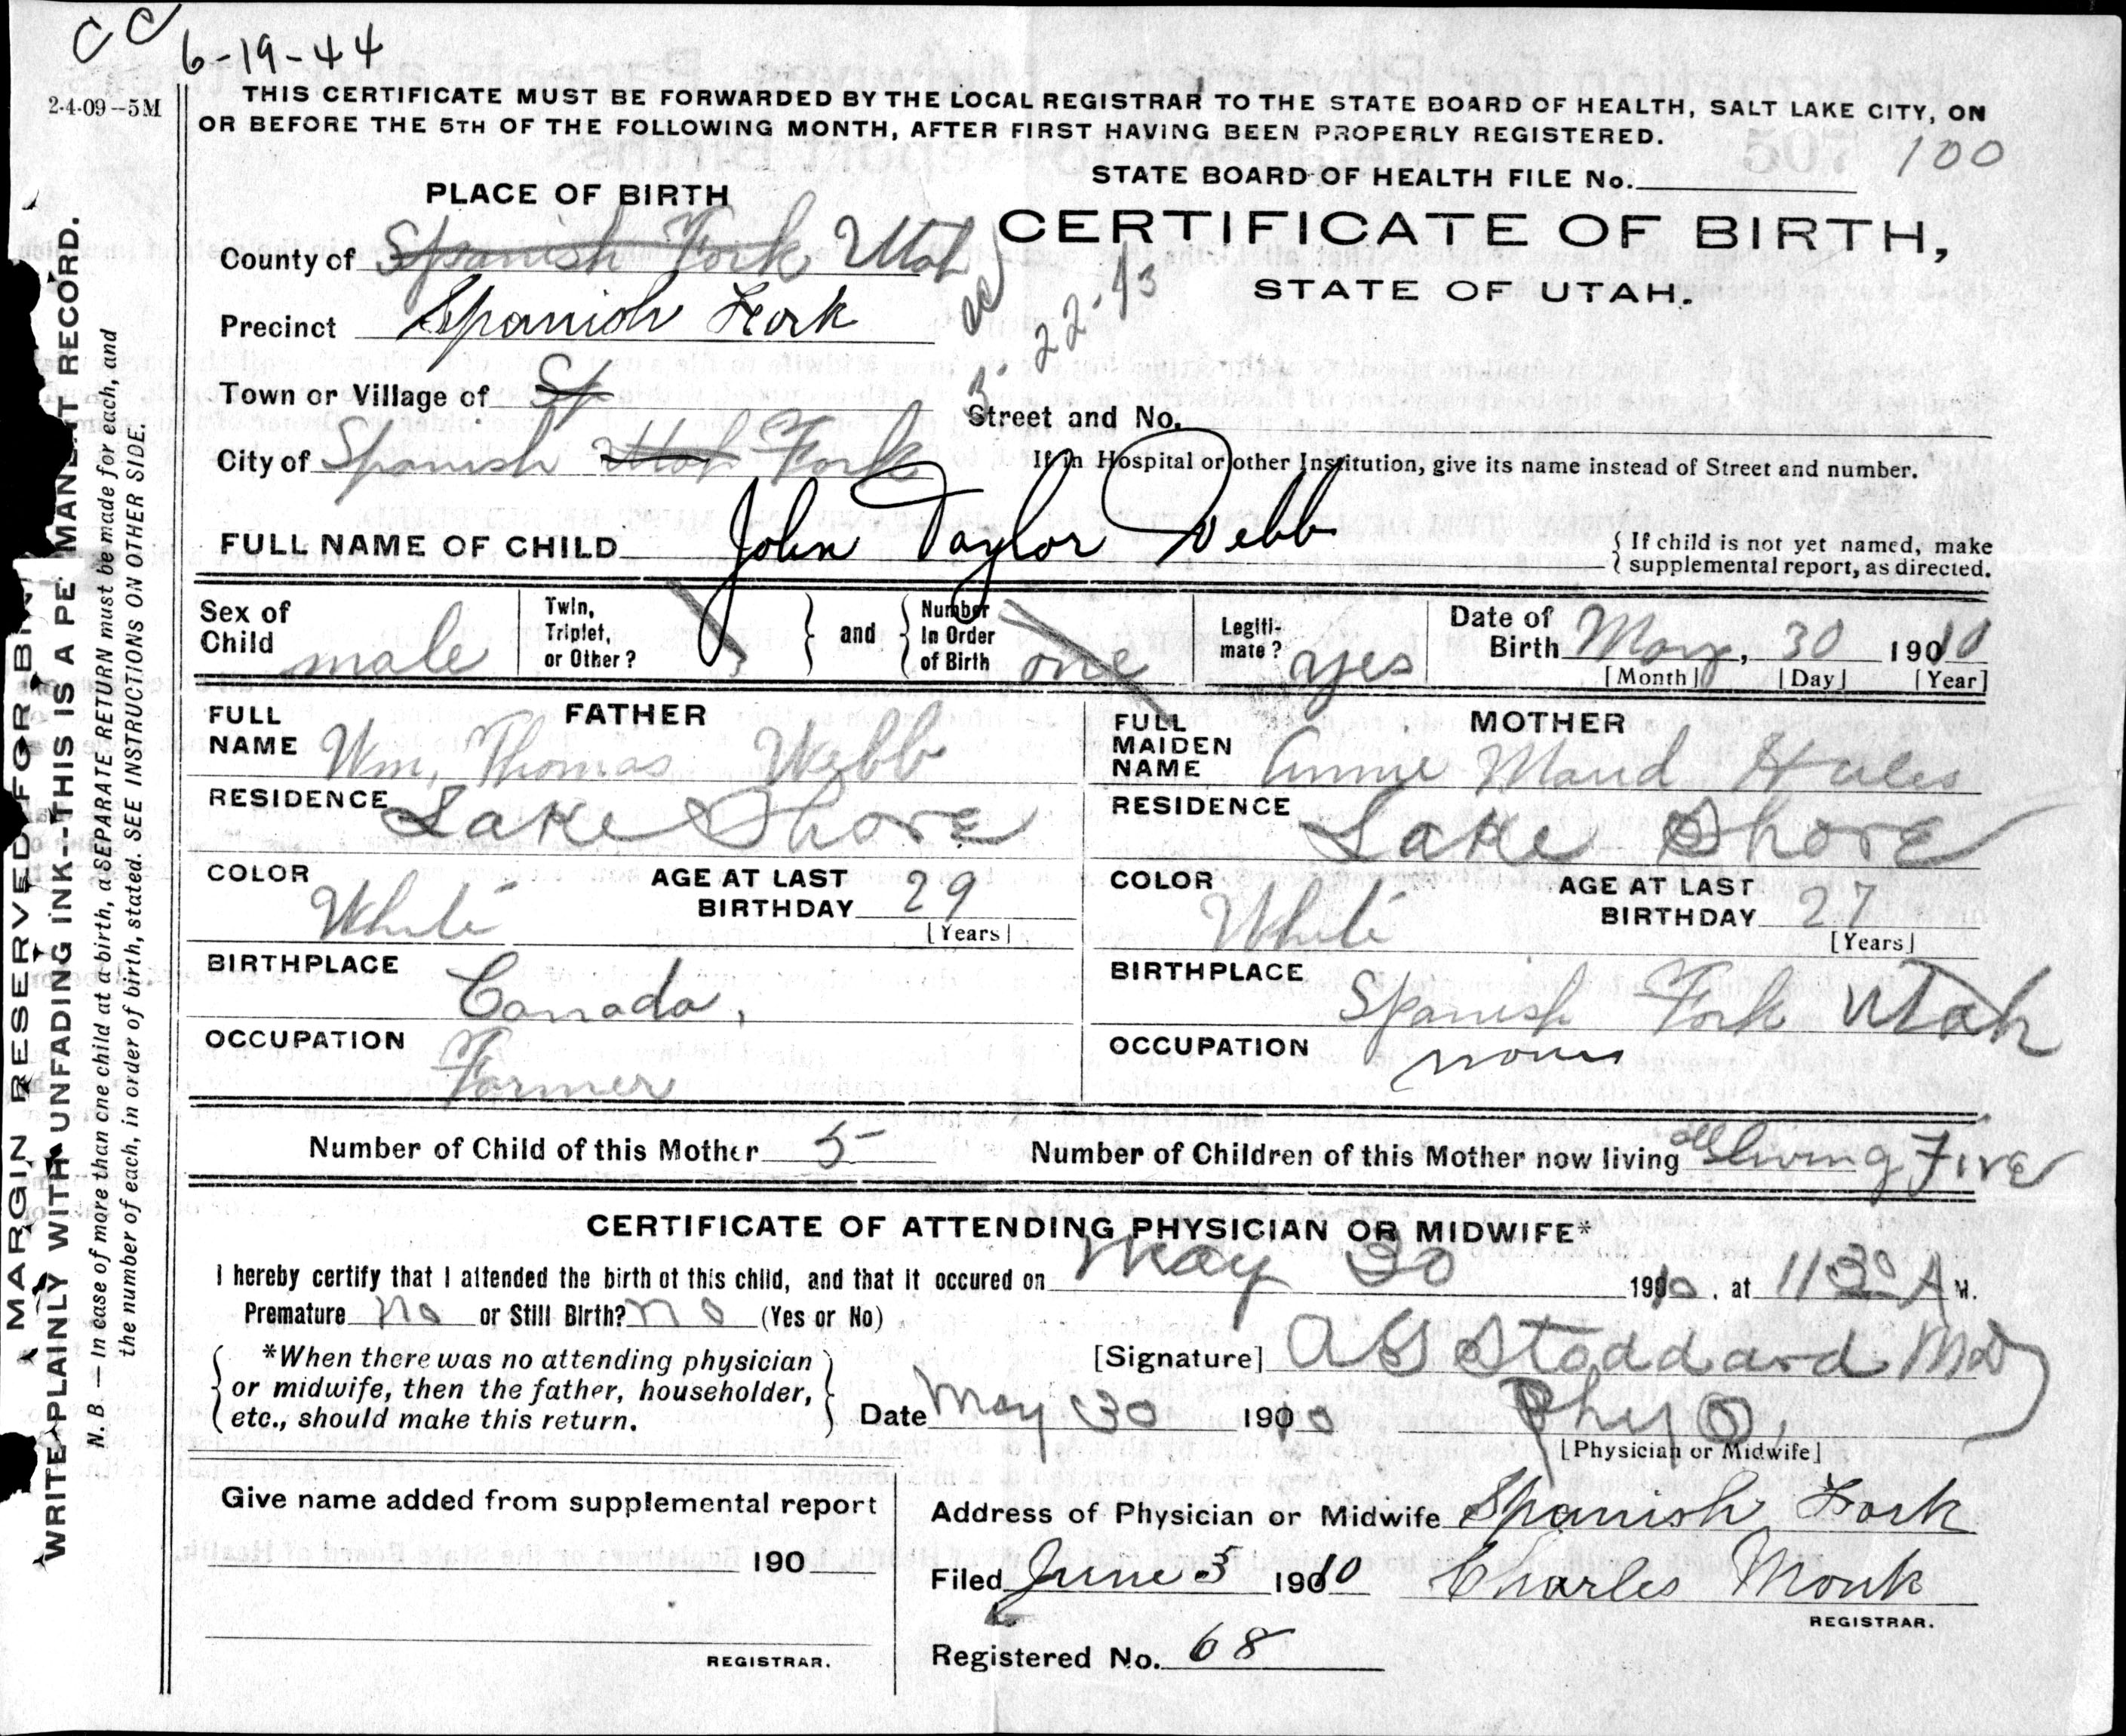 CC 6-19-44
2-4-09—5M
THIS CERTIFICATE MUST BE FORWARDED BY THE LOCAL REGISTRAR TO THE STATE BOARD OF HEALTH, SALT LAKE CITY, ON
OR BEFORE THE 5TH OF THE FOLLOWING MONTH, AFTER FIRST HAVING BEEN PROPERLY REGISTERED.
100
STATE BOARD OF HEALTH FILE No.
PLACE OF BIRTH
CERTIFICATE OF BIRTH,
STATE OF UTAH.
County of Spanish Fork Utah
cc 3-22-43
Precinct Spanish Fork
Town or Village of Sp
Street and No.
City of Spanish Utah Fork
If in Hospital or other Institution, give its name instead of Street and number.
FULL NAME OF CHILD John Taylor Webb
{ If child is not yet named, make
{ supplemental report, as directed.
Sex of Child male
Twin, Triplet, or Other? } and { Number In Order of Birth one
Legiti- mate? yes
Date of Birth May, 30 1910
[Month] [Day] [Year]
FATHER
FULL NAME Wm, Thomas Webb
RESIDENCE Lake Shore
COLOR White AGE AT LAST BIRTHDAY 29
[Years]
BIRTHPLACE Canada,
OCCUPATION Farmer
MOTHER
FULL MAIDEN NAME Annie Maud Hales
RESIDENCE Lake Shore
COLOR White AGE AT LAST BIRTHDAY 27
[Years]
BIRTHPLACE Spanish Fork Utah
OCCUPATION
Number of Child of this Mother 5
Number of Children of this Mother now living all living Five
CERTIFICATE OF ATTENDING PHYSICIAN OR MIDWIFE*
I hereby certify that I attended the birth of this child, and that it occured on May 30 1910, at 11 30 A M.
Premature no or Still Birth? no (Yes or No)
*When there was no attending physician
or midwife, then the father, householder,
etc., should make this return.
[Signature] A G Stoddard MD
Date May 30 1910
[Physician or Midwife]
Give name added from supplemental report
190
REGISTRAR.
Address of Physician or Midwife Spanish Fork
Filed June 5 1910 Charles Monk
REGISTRAR.
Registered No. 68
MARGIN RESERVED FOR BIN
WRITE PLAINLY WITH UNFADING INK—THIS IS A PE MANENT RECORD.
N. B. — In case of more than one child at a birth, a SEPARATE RETURN must be made for each, and
the number of each, in order of birth, stated. SEE INSTRUCTIONS ON OTHER SIDE.